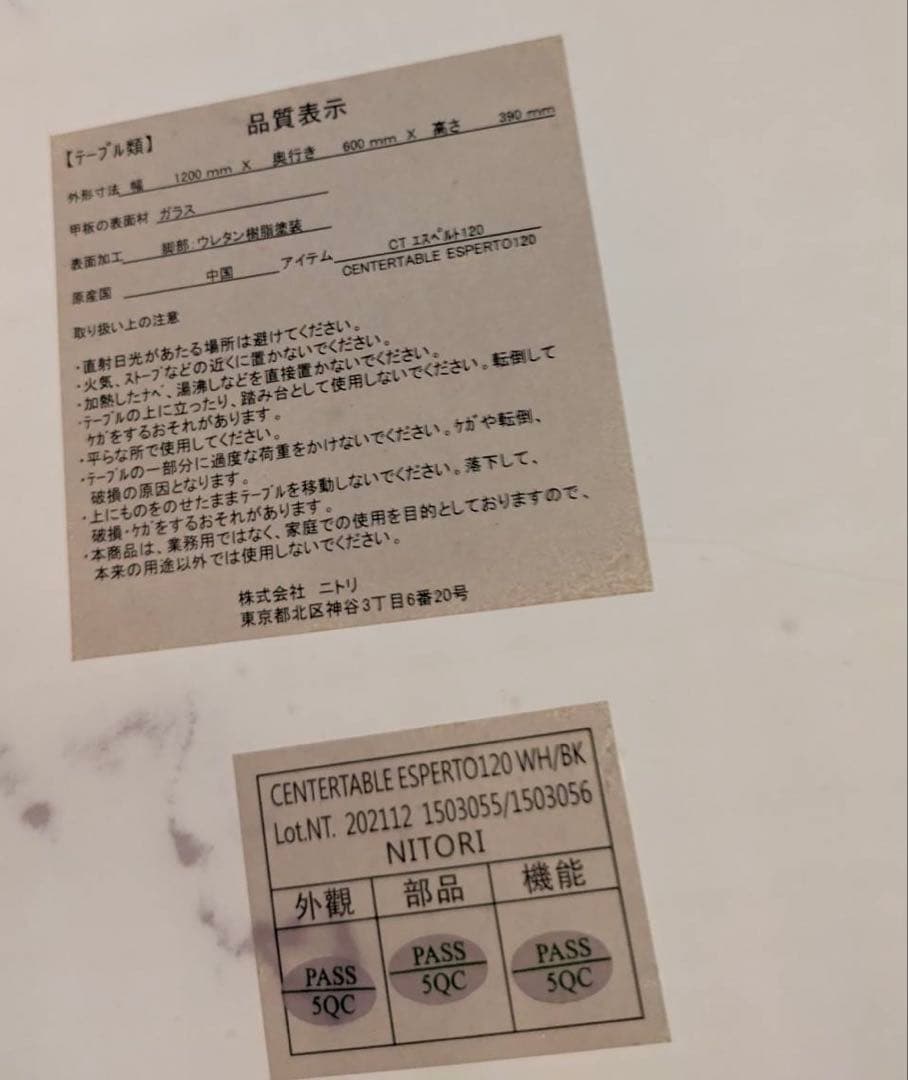 品質表示
【テーブル類】
外形寸法 幅 1200 mm X 奥行き 600 mm X 高さ 390 mm
甲板の表面材 ガラス
表面加工 脚部:ウレタン樹脂塗装
原産国 中国 アイテム CT エスペルト120
CENTERTABLE ESPERTO120
取り扱い上の注意
・直射日光があたる場所は避けてください。
・火気、ストーブなどの近くに置かないでください。
・加熱したナベ、湯沸しなどを直接置かないでください。
・テーブルの上に立ったり、踏み台として使用しないでください。転倒して
ケガをするおそれがあります。
・平らな所で使用してください。
・テーブルの一部分に過度な荷重をかけないでください。ケガや転倒、
破損の原因となります。
・上にものをのせたままテーブルを移動しないでください。落下して、
破損・ケガをするおそれがあります。
・本商品は、業務用ではなく、家庭での使用を目的としておりますので、
本来の用途以外では使用しないでください。
株式会社 ニトリ
東京都北区神谷3丁目6番20号
CENTERTABLE ESPERTO120 WH/BK
Lot.NT. 202112 1503055/1503056
NITORI
外觀 部品 機能
PASS PASS PASS
5QC 5QC 5QC